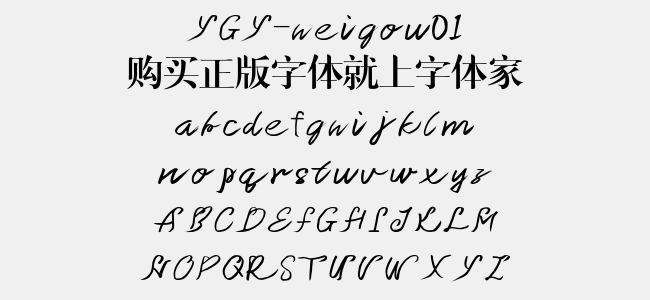 YGY-weigow01
购买正版字体就上字体家
abcdefghijklm
nopqrstuvwxyz
ABCDEFGHIJKLM
NOPQRSTUVWXYZ